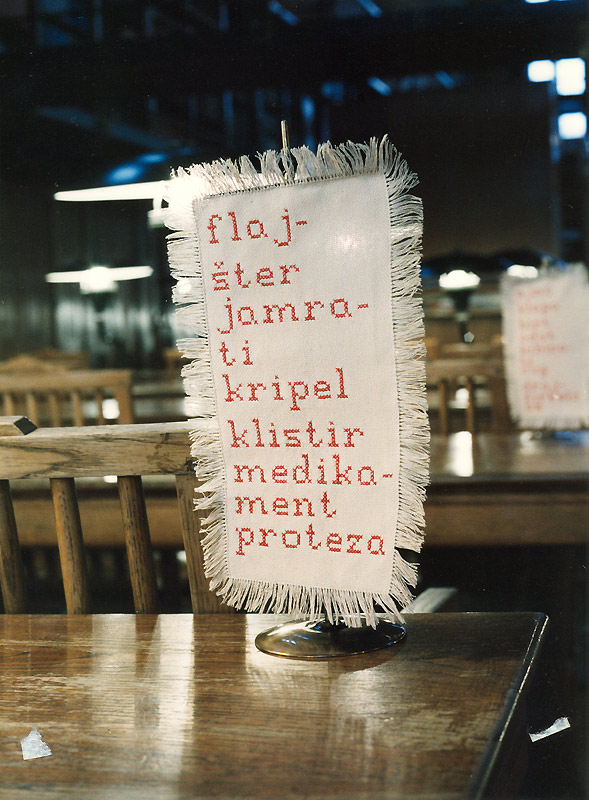 flaj-
šter
jamra-
ti
kripel
klistir
medika-
ment
proteza